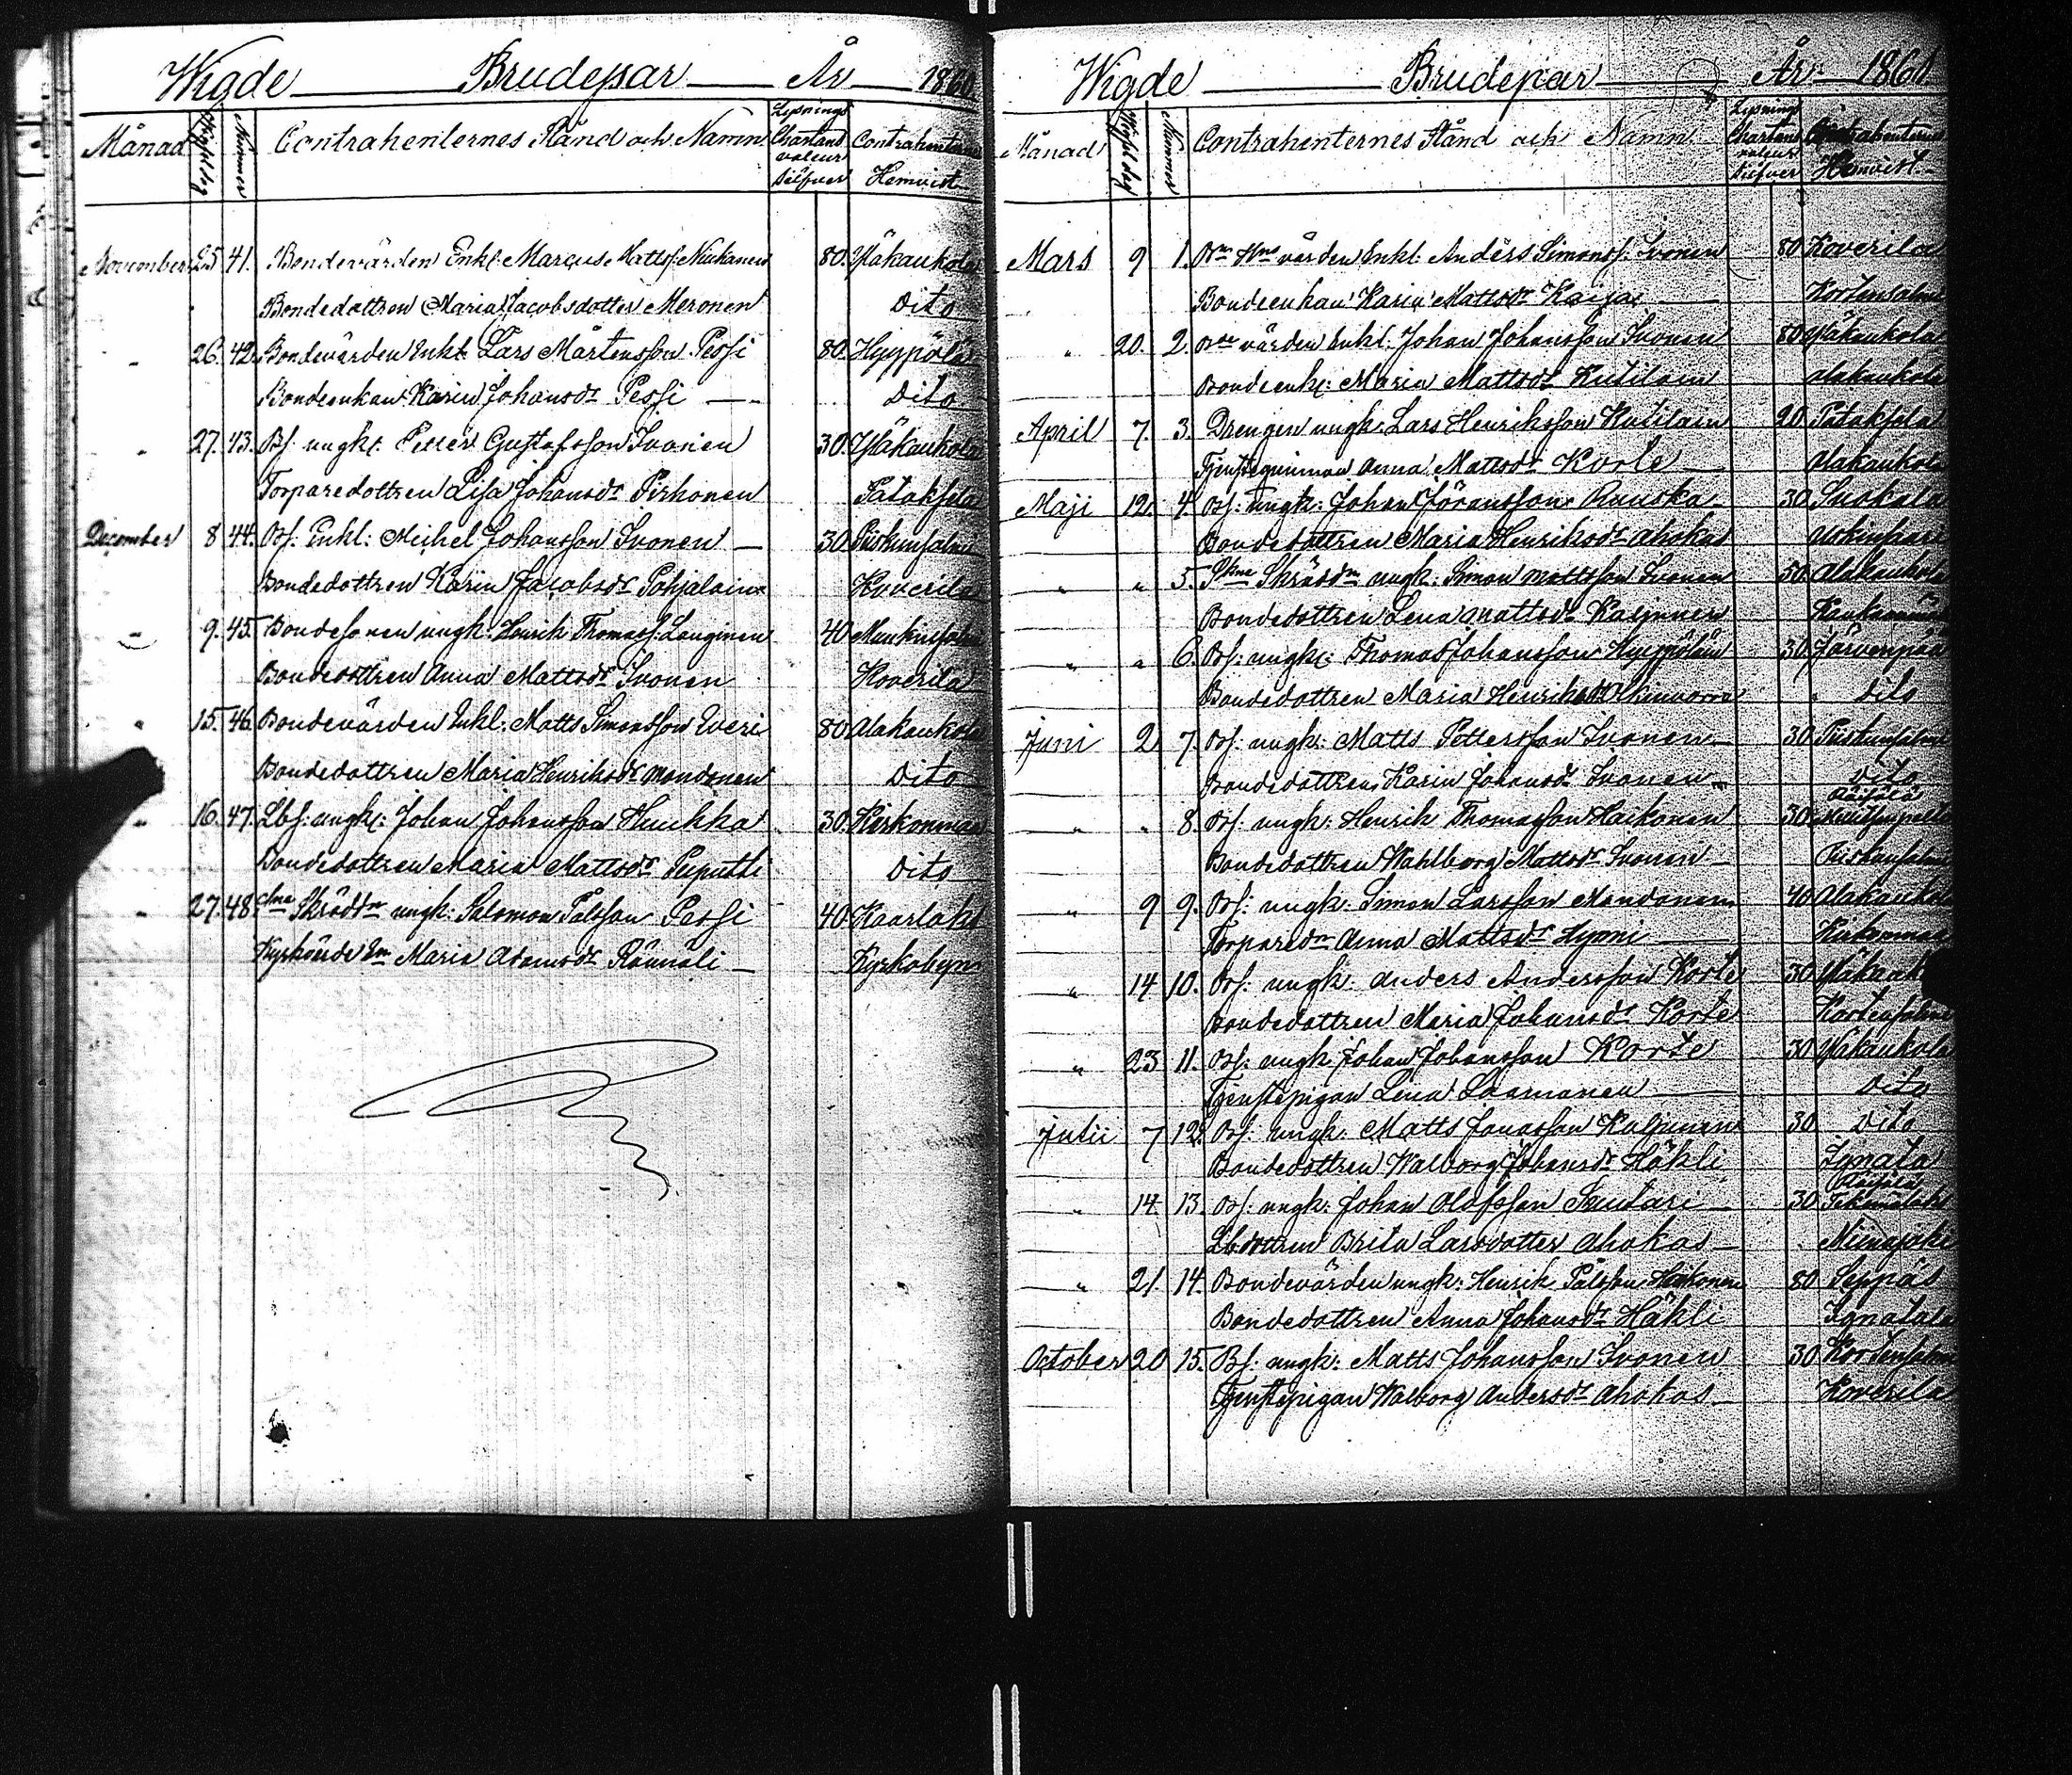 Wigde Brudepar År 1860
Månad Wigsel dag Nummer Contrahenternes Stånd och Namn Lysnings Chartand valeur Silfver Contrahenternes Hemvist
November 25 41. Bondevärden Enkl. Marcus Mattss: Niukanen 80. Yläkaukola
Bondedottren Maria Jacobsdotter Meronen Dito
" 26. 42. Bondevärden Enkl. Lars Mårtensson Pessi 80. Hyypölä
Bondeenkan Karin Johansdr Pessi Dito
" 27. 43. Bs. ungk. Petter Gustafsson Ivonen 30. Yläkaukola
Torparedottren Lisa Johansdr Pirhonen
December 8 44. Bs: Enkl: Michel Johansson Ivonen 30
Bondedottren Karin Jacobsdr Pohjalain Koverila
" 9. 45. Bondesonen ungk. Henrik Thomass. Longinen 40
Bondedottren Anna Mattsdr Ivonen Koverila
" 15. 46. Bondevärden Enkl. Matts Simonsson Everi 80 Alakaukola
Bondedottren Maria Henriksdr Mondonen Dito
" 16. 47. Lbs: ungk: Johan Johansson Huuhka 30. Kirkonmaa
Bondedottren Maria Mattsdr Peiputti Dito
" 27. 48. Skrädd ungk. Salomon Pålsson Pessi 40 Kaarlaks
Maria Adamsdr Kyrkobyn
Wigde Brudepar År 1861
Månad Wigsel dag Nummer Contrahenternes Stånd och Namn Lysnings Chartans valeur Silfver Contrahenternes Hemvist
Mars 9 1. värden Enkl. Anders Simonss. Ivonen 80 Koverila
Bondeenkan Karin Mattsdr Kaija Kortensalmi
" 20. 2. värden Enkl. Johan Johansson Ivonen 80 Yläkaukola
Bondeenk: Maria Mattsdr Kutilain Alakaukola
April 7. 3. Drengen ungk. Lars Henriksson Kutilain 20
Tjensteqvinnan Anna Mattsdr Korte Alakaukola
Maji 12. 4. Bs: ungk: Johan Göransson Ruuska 30
Bondedottren Maria Henriksdr Ahokas
" " 5. Skrädd ungk. Simon Mattsson Ivonen 50 Alakaukola
Bondedottren Lena Mattsdr Kaljunen
" " 6. Bs: ungk: Thomas Johansson Hyyppöläin 30. Järvenpää
Bondedottren Maria Henriksdr Dito
Juni 2 7. Bs: ungk: Matts Pettersson Ivonen 30.
Bondedottren Karin Johansdr Ivonen Dito
" " 8. Bs: ungk: Henrik Thomasson Haikonen 30.
Bondedottren Wahlborg Mattsdr Ivonen
" 9 9. Bs: ungk. Simon Larsson Mondonen 40 Alakaukola
Torparedn Anna Mattsdr Hynni Kirkonmaa
" 14 10. Bs: ungk. Anders Andersson Korte 30
Bondedottren Maria Johansdr Korte Kortensalmi
" 23 11. Bs: ungk. Johan Johansson Korte 30 Yläkaukola
Tjenstepigan Lena Laamanen Dito
Julii 7 12. Bs: ungk. Matts Jonasson Kaljunen 30 Dito
Bondedottren Walborg Johansdr Häkli
" 14. 13. Bs: ungk: Johan Olofsson Suutari 30
Lbdottren Brita Larsdotter Ahokas
" 21. 14. Bondevärden ungk: Henrik Pålsson 80. Seppäs
Bondedottren Anna Johansdr Häkli
October 20 15. Bs: ungk: Matts Johansson Ivonen 30 Kortensalmi
Tjenstepigan Walborg Andersdr Ahokas Koverila